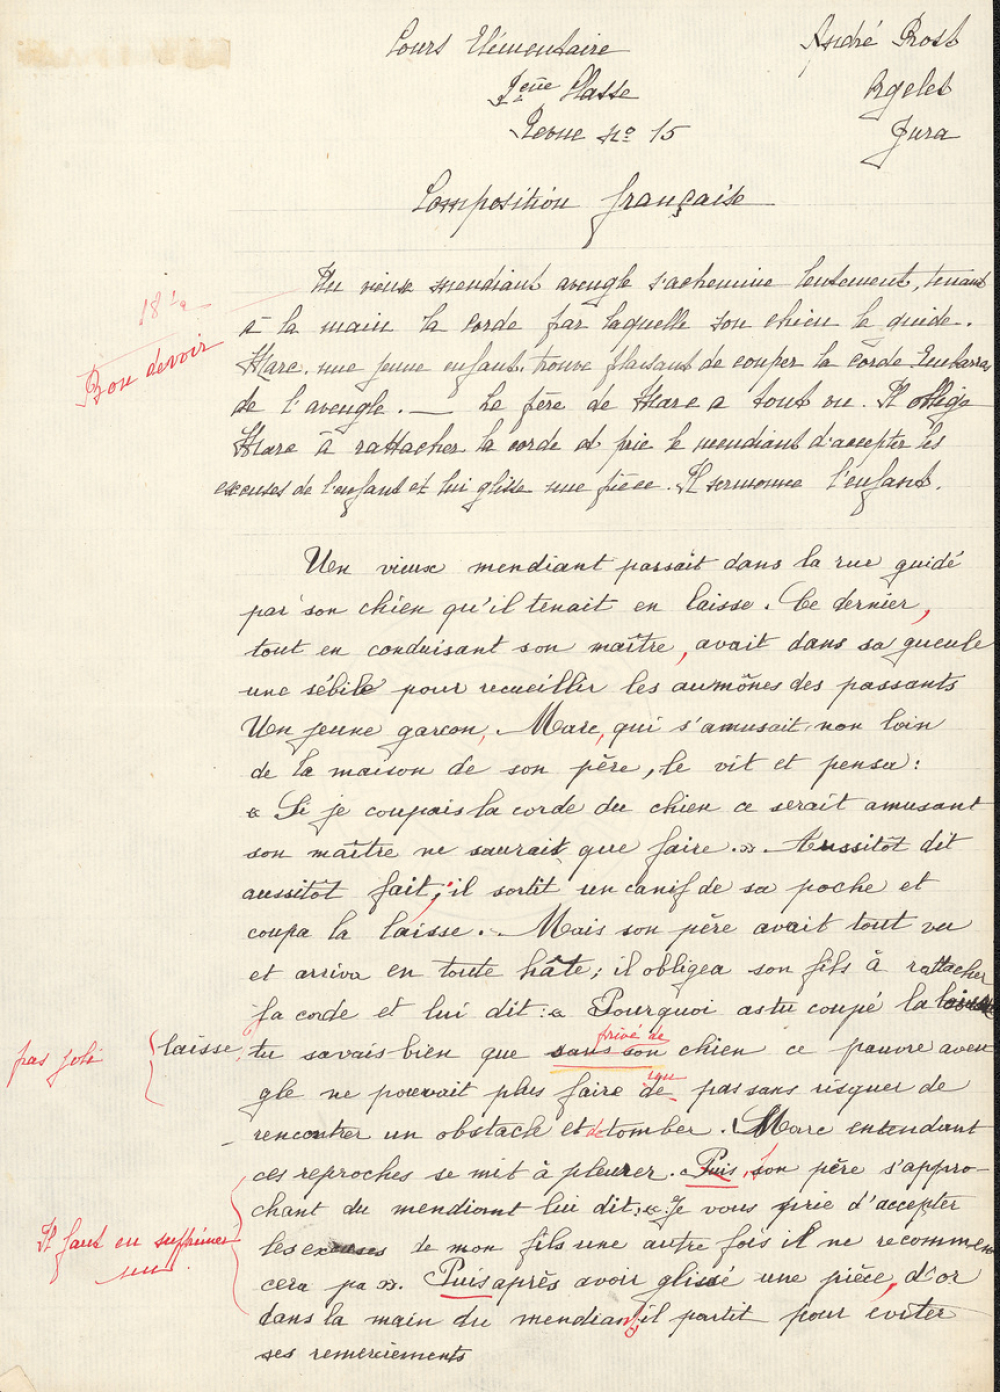 Cours Elémentaire
André Prost
2ème Classe
Orgelet
Revue nº 15
Jura
Composition française
Un vieux mendiant aveugle s'achemine lentement, tenant
à la main la corde par laquelle son chien le guide.
18
Bon devoir
Marc, une jeune enfant, trouve plaisant de couper la corde. Embarras
de l'aveugle. — Le père de Marc a tout vu. Il oblige
Marc à rattacher la corde et prie le mendiant d'accepter les
excuses de l'enfant et lui glisse une pièce. Il sermonne l'enfant.
Un vieux mendiant passait dans la rue guidé
par son chien qu'il tenait en laisse. Ce dernier,
tout en conduisant son maître, avait dans sa gueule
une sébile pour recueillir les aumônes des passants
Un jeune garcon, Marc, qui s'amusait non loin
de la maison de son père, le vit et pensa:
« Si je coupais la corde du chien ce serait amusant
son maître ne saurait que faire ». Aussitôt dit
aussitôt fait; il sortit un canif de sa poche et
coupa la laisse. Mais son père avait tout vu
et arriva en toute hâte; il obligea son fils à rattacher
la corde et lui dit: « Pourquoi as tu coupé la laisse
privé de
pas joli laisse, tu savais bien que sans son chien ce pauvre aveu
gle ne pouvait plus faire de pas sans risquer de
rencontrer un obstacle et de tomber. Marc entendant
ces reproches se mit à pleurer. Puis, son père s'appro-
chant du mendiant lui dit: « Je vous prie d'accepter
Il faut en supprimer un.
les excuses de mon fils une autre fois il ne recommen
cera pa ». Puis après avoir glissé une pièce, d'or
dans la main du mendiant, il partit pour eviter
ses remerciements